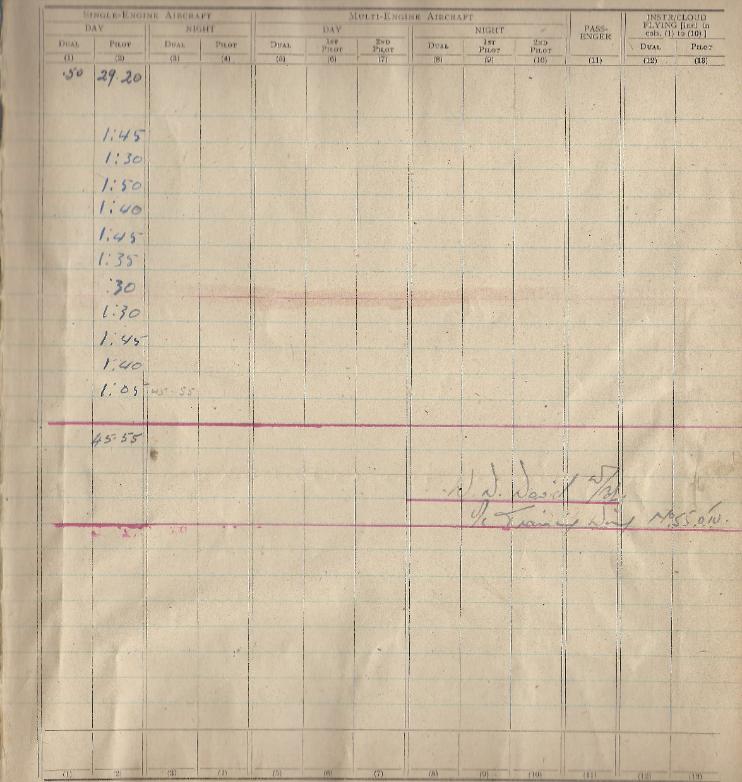 SINGLE-ENGINE AIRCRAFT MULTI-ENGINE AIRCRAFT PASS-ENGER INSTR/CLOUD FLYING [incl in cols. (1) to (10)]
DAY NIGHT DAY NIGHT
DUAL PILOT DUAL PILOT DUAL 1ST PILOT 2ND PILOT DUAL 1ST PILOT 2ND PILOT DUAL PILOT
(1) (2) (3) (4) (5) (6) (7) (8) (9) (10) (11) (12) (13)
.50 29.20
1:45
1:30
1:50
1:40
1:45
1:35
:30
1:30
1:45
1:40
1:05 45-55
45-55
David
Training Wing No 55
(1) (2) (3) (4) (5) (6) (7) (8) (9) (10) (11) (12) (13)